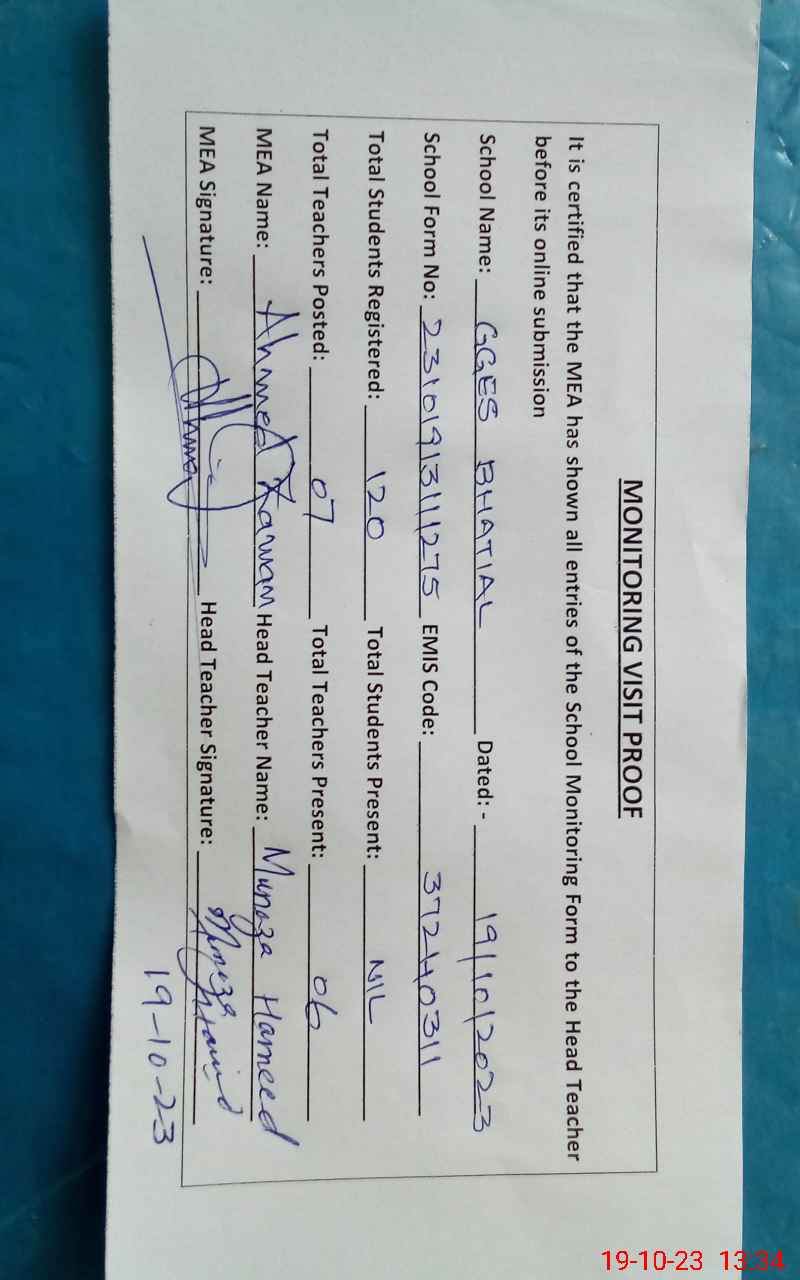 MONITORING VISIT PROOF
It is certified that the MEA has shown all entries of the School Monitoring Form to the Head Teacher
before its online submission
School Name: GGES BHATIAL Dated: - 19/10/2023
School Form No: 231019131111275 EMIS Code: 37240311
Total Students Registered: 120 Total Students Present: NIL
Total Teachers Posted: 07 Total Teachers Present: 06
MEA Name: Ahmed Zawam Head Teacher Name: Munaza Hameed
MEA Signature: Head Teacher Signature: Munaza
19-10-23
19-10-23 13:34